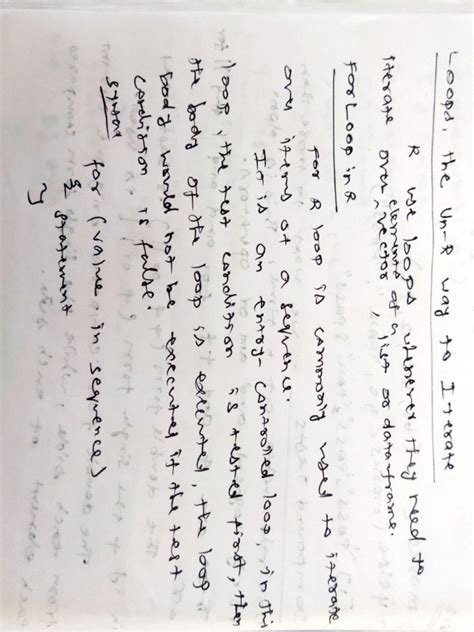 Loops, the Un-R way to Iterate
R use loops whenever they need to
iterate over elements of a vector, list or dataframe.
For Loop in R
For R loop is commonly used to iterate
over items of a sequence.
It is an entry-controlled loop, in this
loop, the test condition is tested first, then
the body of the loop is executed, the loop
body would not be executed if the test
condition is false.
Syntax
for (value in sequence)
{ statement
}